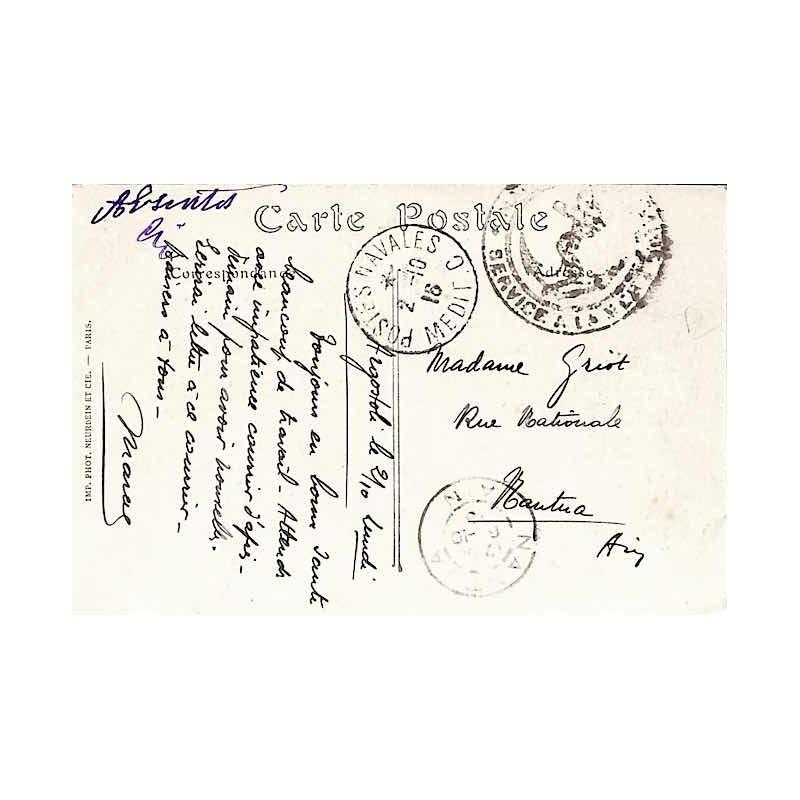 Absents
Carte Postale
Correspondance
Adresse
POSTES NAVALES MEDIT.
2 -10 16
SERVICE A LA MER
Argostoli le 2/10 Lundi
Toujours en bonne santé
beaucoup de travail - Attends
avec impatience courrier d'après-
demain pour avoir nouvelles.
lettre à ce courrier -
Baisers à tous -
Marcel
Madame Griot
Rue Nationale
Nantua
Ain
IMP. PHOT. NEURDEIN ET CIE. — PARIS.